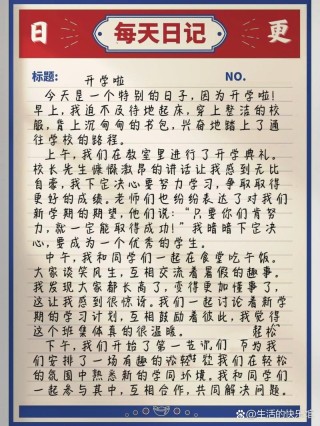 日 每天日记 更
标题: 开学啦 NO.
今天是一个特别的日子,因为开学啦!
早上,我迫不及待地起床,穿上整洁的校
服,背上沉甸甸的书包,兴奋地踏上了通
往学校的路程。
上午,我们在教室里进行了开学典礼。
校长先生慷慨激昂的讲话让我感到无比
自豪,我下定决心要努力学习,争取取得
更好的成绩。老师们也纷纷表达了对我们
新学期的期望,他们说:“只要你们肯努
力,就一定能取得成功!”我暗暗下定决
心,要成为一个优秀的学生。
中午,我和同学们一起在食堂吃午饭。
大家谈笑风生,互相交流着暑假的趣事。
我发现大家都长高了,变得更加懂事了,
这让我感到很惊讶。我们一起讨论着新学
期的学习计划,互相鼓励着彼此,我觉得
这个班集体真的很温暖。 轻松
下午,我们开始了第一节课
们安排了一场有趣的 让我
们在轻松
的氛围中熟悉新的学同环境。我和同学们
一起参与其中,互相合作,共同解决问题。
@生活的快乐馆